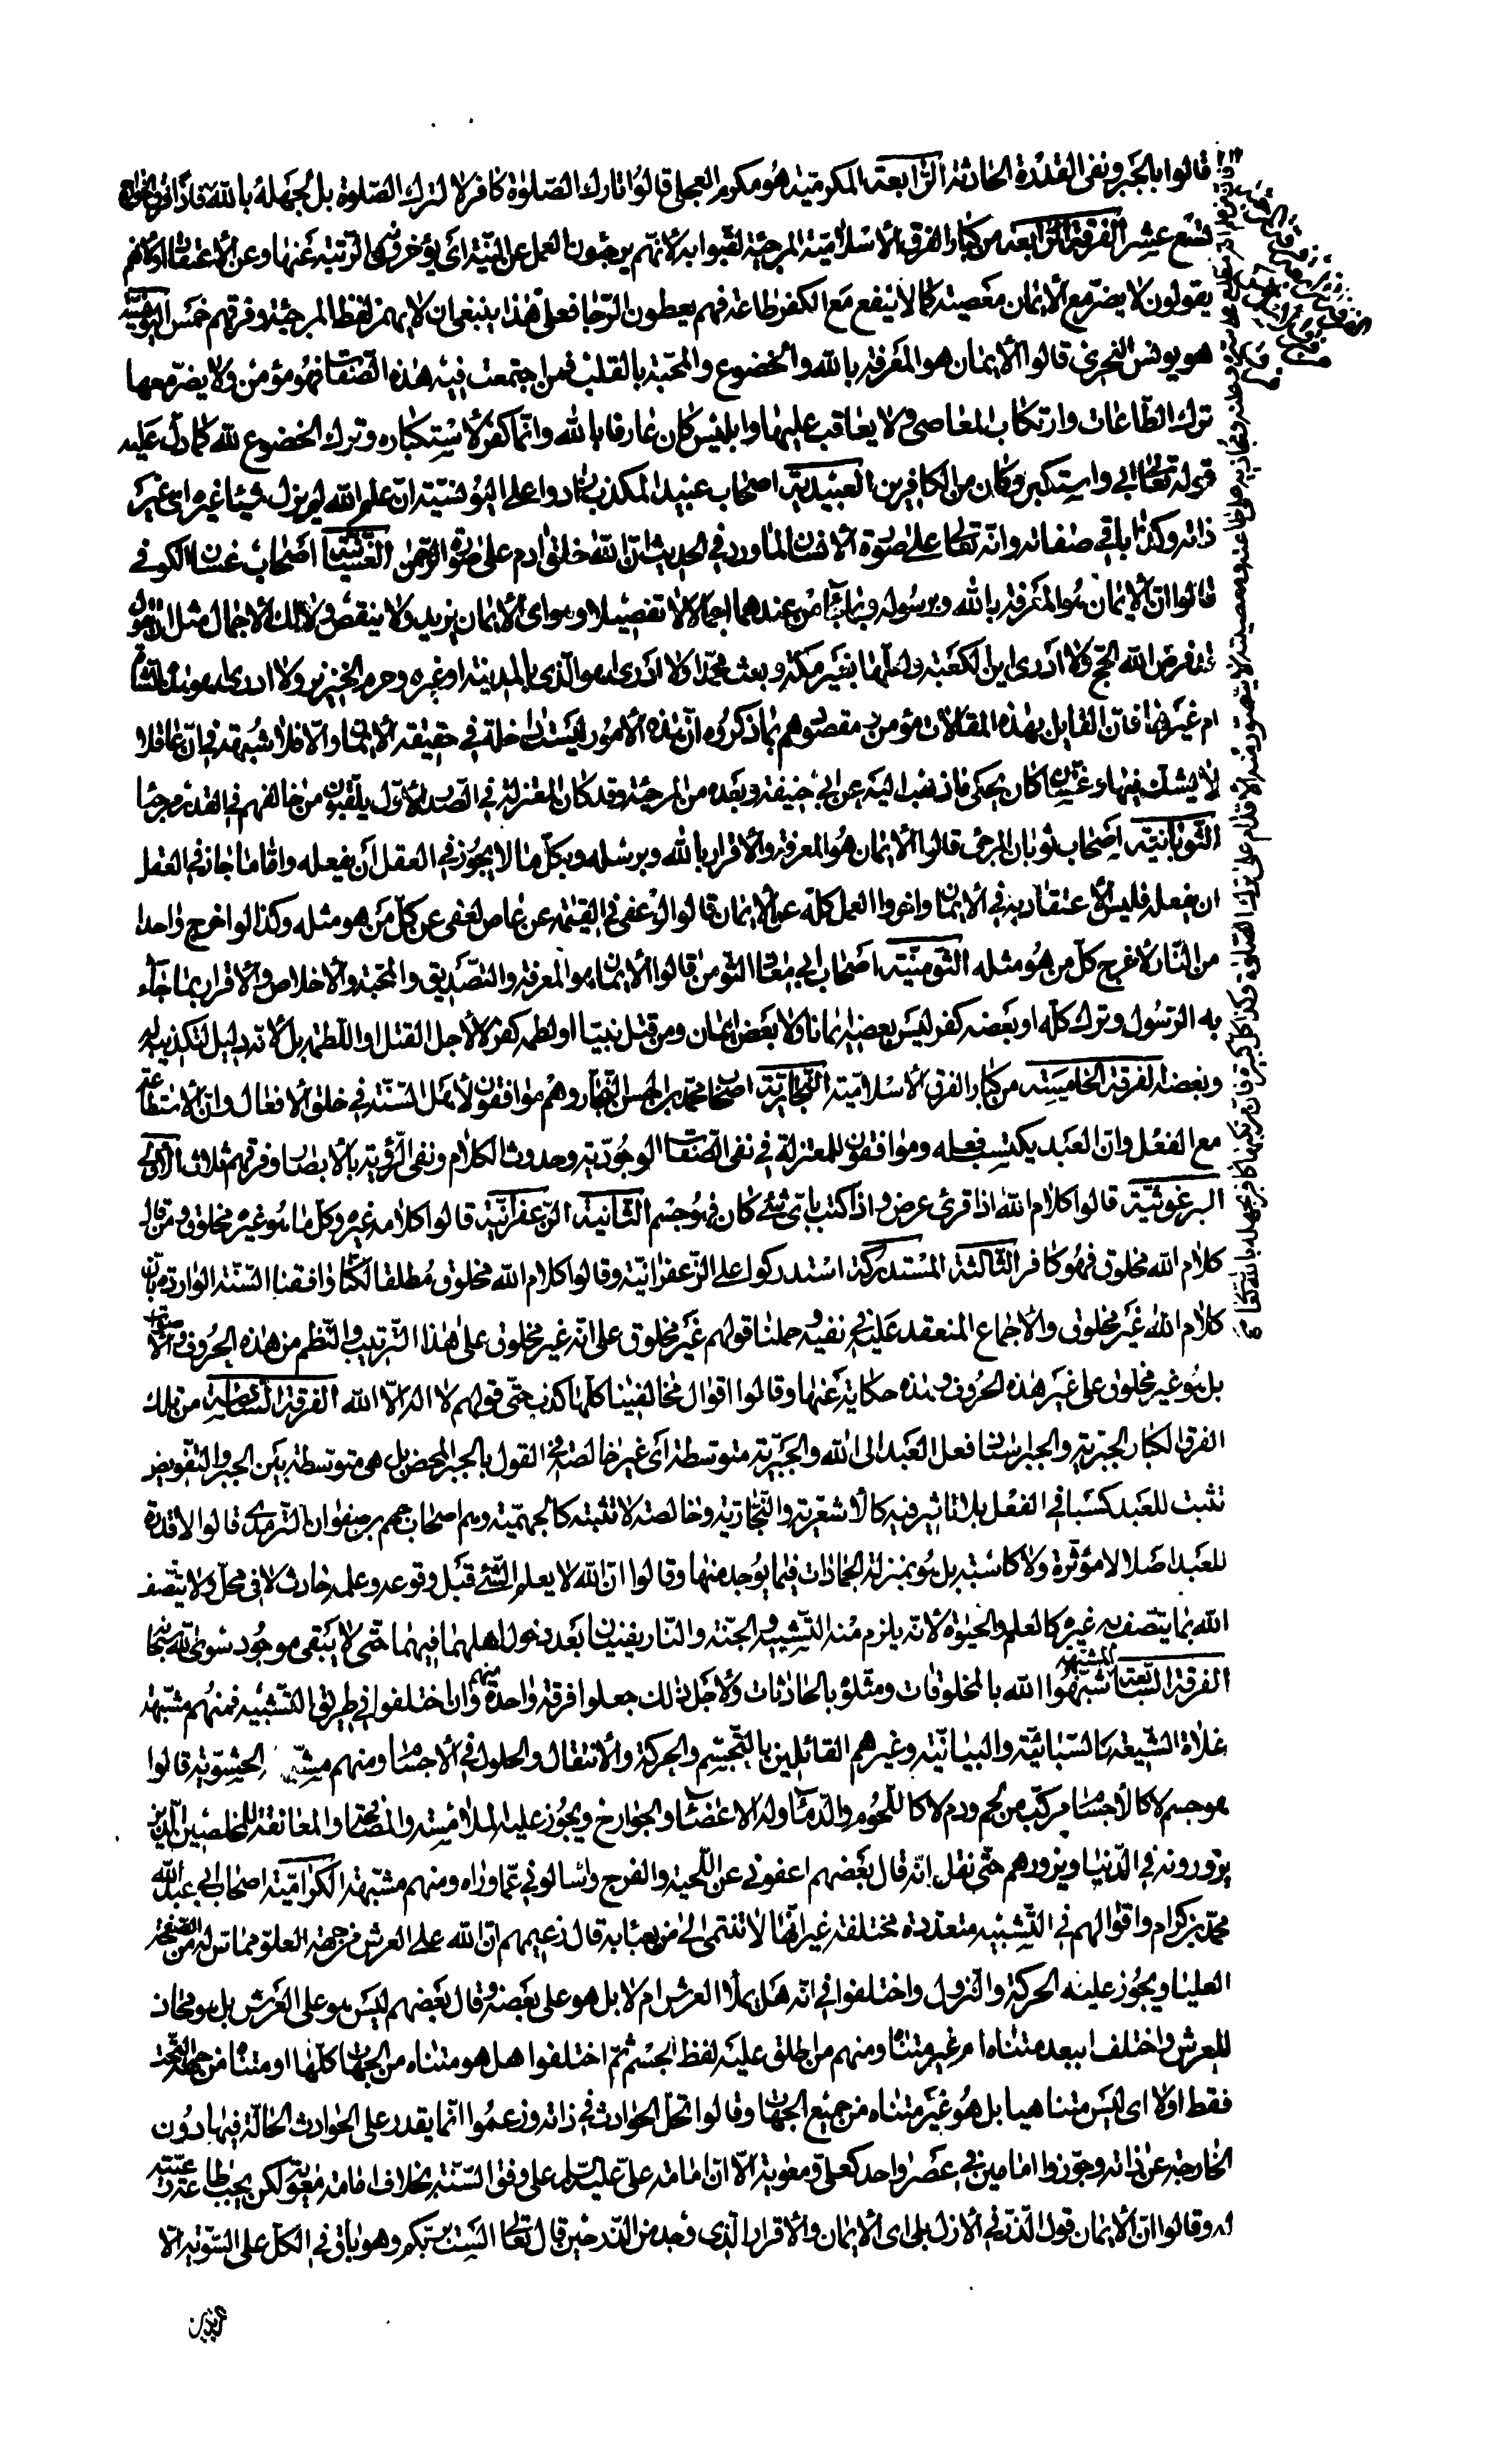 قالوا بالجبر ونفى القدرة الحادثة الرابعة المكرمية هو مكرم العجلى قالوا تارك الصلوة كافر لا لترك الصلوة بل لجهله بالله فاذا فرق الخوارج
تسع عشر الفرقة الرابعة من كبار الفرق الاسلامية المرجئة لقبوا به لانهم يرجئون العمل عن النية اى يؤخرونه فى الرتبة عنها وعن الاعتقاد او لانهم
يقولون لا يضر مع الايمان معصية كما لا ينفع مع الكفر طاعة فهم يعطون الرجا فعلى هذا ينبغى ان لا يهمز لفظ المرجئة وفرقهم خمس اليونسية
هو يونس النميرى قالوا الايمان هو المعرفة بالله والخضوع والمحبة بالقلب فمن اجتمعت فيه هذه الصفات فهو مؤمن ولا يضر معها
ترك الطاعات وارتكاب المعاصى ولا يعاقب عليها وابليس كان عارفا بالله وانما كفر لاستكباره وترك الخضوع لله كما دل عليه
قوله تعالى ابى واستكبر وكان من الكافرين العبيدية اصحاب عبيد المكذب زادوا على اليونسية ان علم الله لم يزل شيئا غيره اى غير
ذاته وكذا باقى صفاته وانه تعالى على صورة الانسان لما ورد فى الحديث ان الله خلق ادم على صورة الرحمن الغسانية اصحاب غسان الكوفى
قالوا ان الايمان هو المعرفة بالله وبرسوله وبما جاء من عندهما اجمالا لا تفصيلا وهو اى الايمان يزيد ولا ينقص وذلك الاجمال مثل ان يقول
قد فرض الله الحج ولا ادرى اين الكعبة ولعلها بغير مكة وبعث محمدا ولا ادرى اهو الذى بالمدينة او غيره وحرم الخنزير ولا ادرى اهو هذه الشاة
ام غيرها فان القايل بهذه المقالات مؤمن ومقصودهم بما ذكروه ان هذه الامور ليست داخلة فى حقيقة الايمان والا فلا شبهة فى ان عاقلا
لا يشك فيها وغسان كان يحكى ما ذهب اليه عن ابى حنيفة وبعده من المرجئة وقد كان المعتزلة فى الصدر الاول يلقبون من خالفهم فى القدر مرجئا
الثوبانية اصحاب ثوبان المرجى قالوا الايمان هو المعرفة والاقرار بالله وبرسله وبكل ما لا يجوز فى العقل ان يفعله واما ما جاز فى العقل
ان يفعله فليس الاعتقاد به فى الايمان واخروا العمل كله عن الايمان قالوا لو عفى فى القيمة عن عاص لعفى عن كل من هو مثله وكذا لو اخرج واحدا
من النار لاخرج كل من هو مثله الثومنية اصحاب ابى معاذ الثومن قالوا الايمان هو المعرفة والتصديق والمحبة والاخلاص والاقرار بما جاء
به الرسول وترك كله او بعضه كفر ليس بعضه ايمانا ولا بعض ايمان ومن قتل نبيا او لطمه كفر لا لاجل القتل واللطمة بل لانه دليل لتكذيبه
وبغضه الفرقة الخامسة من كبار الفرق الاسلامية النجارية اصحاب محمد بن الحسن النجار وهم موافقون لاهل السنة فى خلق الافعال وان الاستطاعة
مع الفعل وان العبد يكتسب فعله وموافقون للمعتزلة فى نفى الصفات الوجودية وحدوث الكلام ونفى الرؤية بالابصار وفرقهم ثلاث الاولى
البرغوثية قالوا كلام الله اذا قرئ عرض واذا كتب باى شئ كان فهو جسم الثانية الزعفرانية قالوا كلامه غيره وكل ما هو غيره مخلوق ومن قال
كلام الله مخلوق فهو كافر الثالثة المستدركة استدركوا على الزعفرانية وقالوا كلام الله مخلوق مطلقا لكنا وافقنا السنة الواردة بان
كلام الله غير مخلوق والاجماع المنعقد عليه فى نفيه وحملنا قولهم غير مخلوق على انه غير مخلوق على هذا الترتيب والنظم من هذه الحروف والاصوات
بل هو غير مخلوق على غير هذه الحروف وهذه حكاية عنها وقالوا اقوال مخالفينا كلها كذب حتى قولهم لا اله الا الله الفرقة السادسة من تلك
الفرق الكبار الجبرية والجبر اسناد فعل العبد الى الله والجبرية متوسطة اى غير خالصة فى القول بالجبر المحض بل هى متوسطة بين الجبر والتفويض
تثبت للعبد كسبا فى الفعل بلا تاثير فيه كالاشعرية والنجارية وخالصة لا تثبته كالجهمية وهم اصحاب جهم بن صفوان الترمدى قالوا لا قدرة
للعبد اصلا لا مؤثرة ولا كاسبة بل هو بمنزلة الجمادات فيما يوجد منها وقالوا ان الله لا يعلم الشئ قبل وقوعه وعلمه حادث لا فى محل ولا يتصف
الله بما يتصف به غيره كالعلم والحيوة لانه يلزم منه التشبيه والجنة والنار يفنيان بعد دخول اهلهما فيهما حتى لا يبقى موجود سوى الله سبحانه
الفرقة السابعة المشبهة شبهوا الله بالمخلوقات ومثلوه بالحادثات ولاجل ذلك جعلوا فرقة واحدة منهم وان اختلفوا فى طريق التشبيه فمنهم مشبهة
غلاة الشيعة كالسبائية والبيانية وغيرهم القائلين بالتجسم والحركة والانتقال والحلول فى الاجسام ومنهم مشبهة الحشوية قالوا
هو جسم لا كالاجسام مركب من لحم ودم لا كاللحوم والدماء وله الاعضاء والجوارح ويجوز عليه الملامسة والمصافحة والمعانقة للمخلصين الذين
يزورونه فى الدنيا ويزورهم حتى نقل انه قال بعضهم اعفونى عن اللحية والفرج واسالونى عما وراه ومنهم مشبهة الكرامية اصحاب ابى عبد الله
محمد بن كرام واقوالهم فى التشبيه متعددة مختلفة غير انها لا تنتمى الى من يعبا به قال زعيمهم ان الله على العرش من جهة العلو مماس له من الصفحة
العليا ويجوز عليه الحركة والنزول واختلفوا فى انه هل يملا العرش ام لا بل هو على بعضه وقال بعضهم ليس هو على العرش بل هو محاذ
للعرش واختلف ابعد متناه ام غير متناه ومنهم من اطلق عليه لفظ الجسم ثم اختلفوا هل هو متناه من الجهات كلها او متناه من جهة التحت
فقط او لا اى ليس متناهيا بل هو غير متناه من جميع الجهات وقالوا تحل الحوادث فى ذاته وزعموا انما يقدر على الحوادث الحالة فيها دون
الخارجة عن ذاته وجوزوا امامين فى عصر واحد كعلى ومعوية الا ان امامة على عليه السلم على وفق السنة بخلاف امامة معوية لكن يجب طاعة رعيته
له وقالوا ان الايمان قول الذر فى الازل بلى اى الايمان والاقرار الذى وجد من الذر حين قال تعالى الست بربكم وهو باق فى الكل على السوية الا